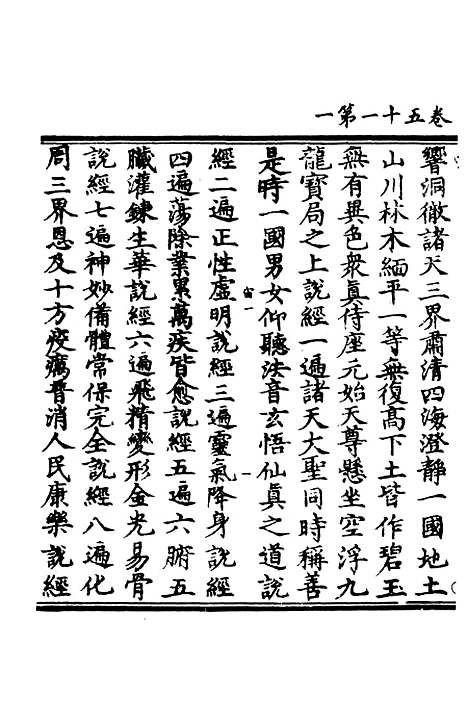 一第一十五卷
響洞徹諸天三界肅清四海澄靜一國地土
山川林木緬平一等無復高下土皆作碧玉
無有異色衆眞侍座元始天尊懸坐空浮九
龍寳局之上說經一遍諸天大聖同時稱善
是時一國男女仰聽法音玄悟仙眞之道說
宙一
一
經二遍正性虛明說經三遍靈氣降身說經
四遍蕩除業累萬疾皆愈說經五遍六腑五
臟灌鍊生華說經六遍飛精變形金光易骨
說經七遍神妙備體常保完全說經八遍化
周三界恩及十方疫癘晋消人民康樂說經